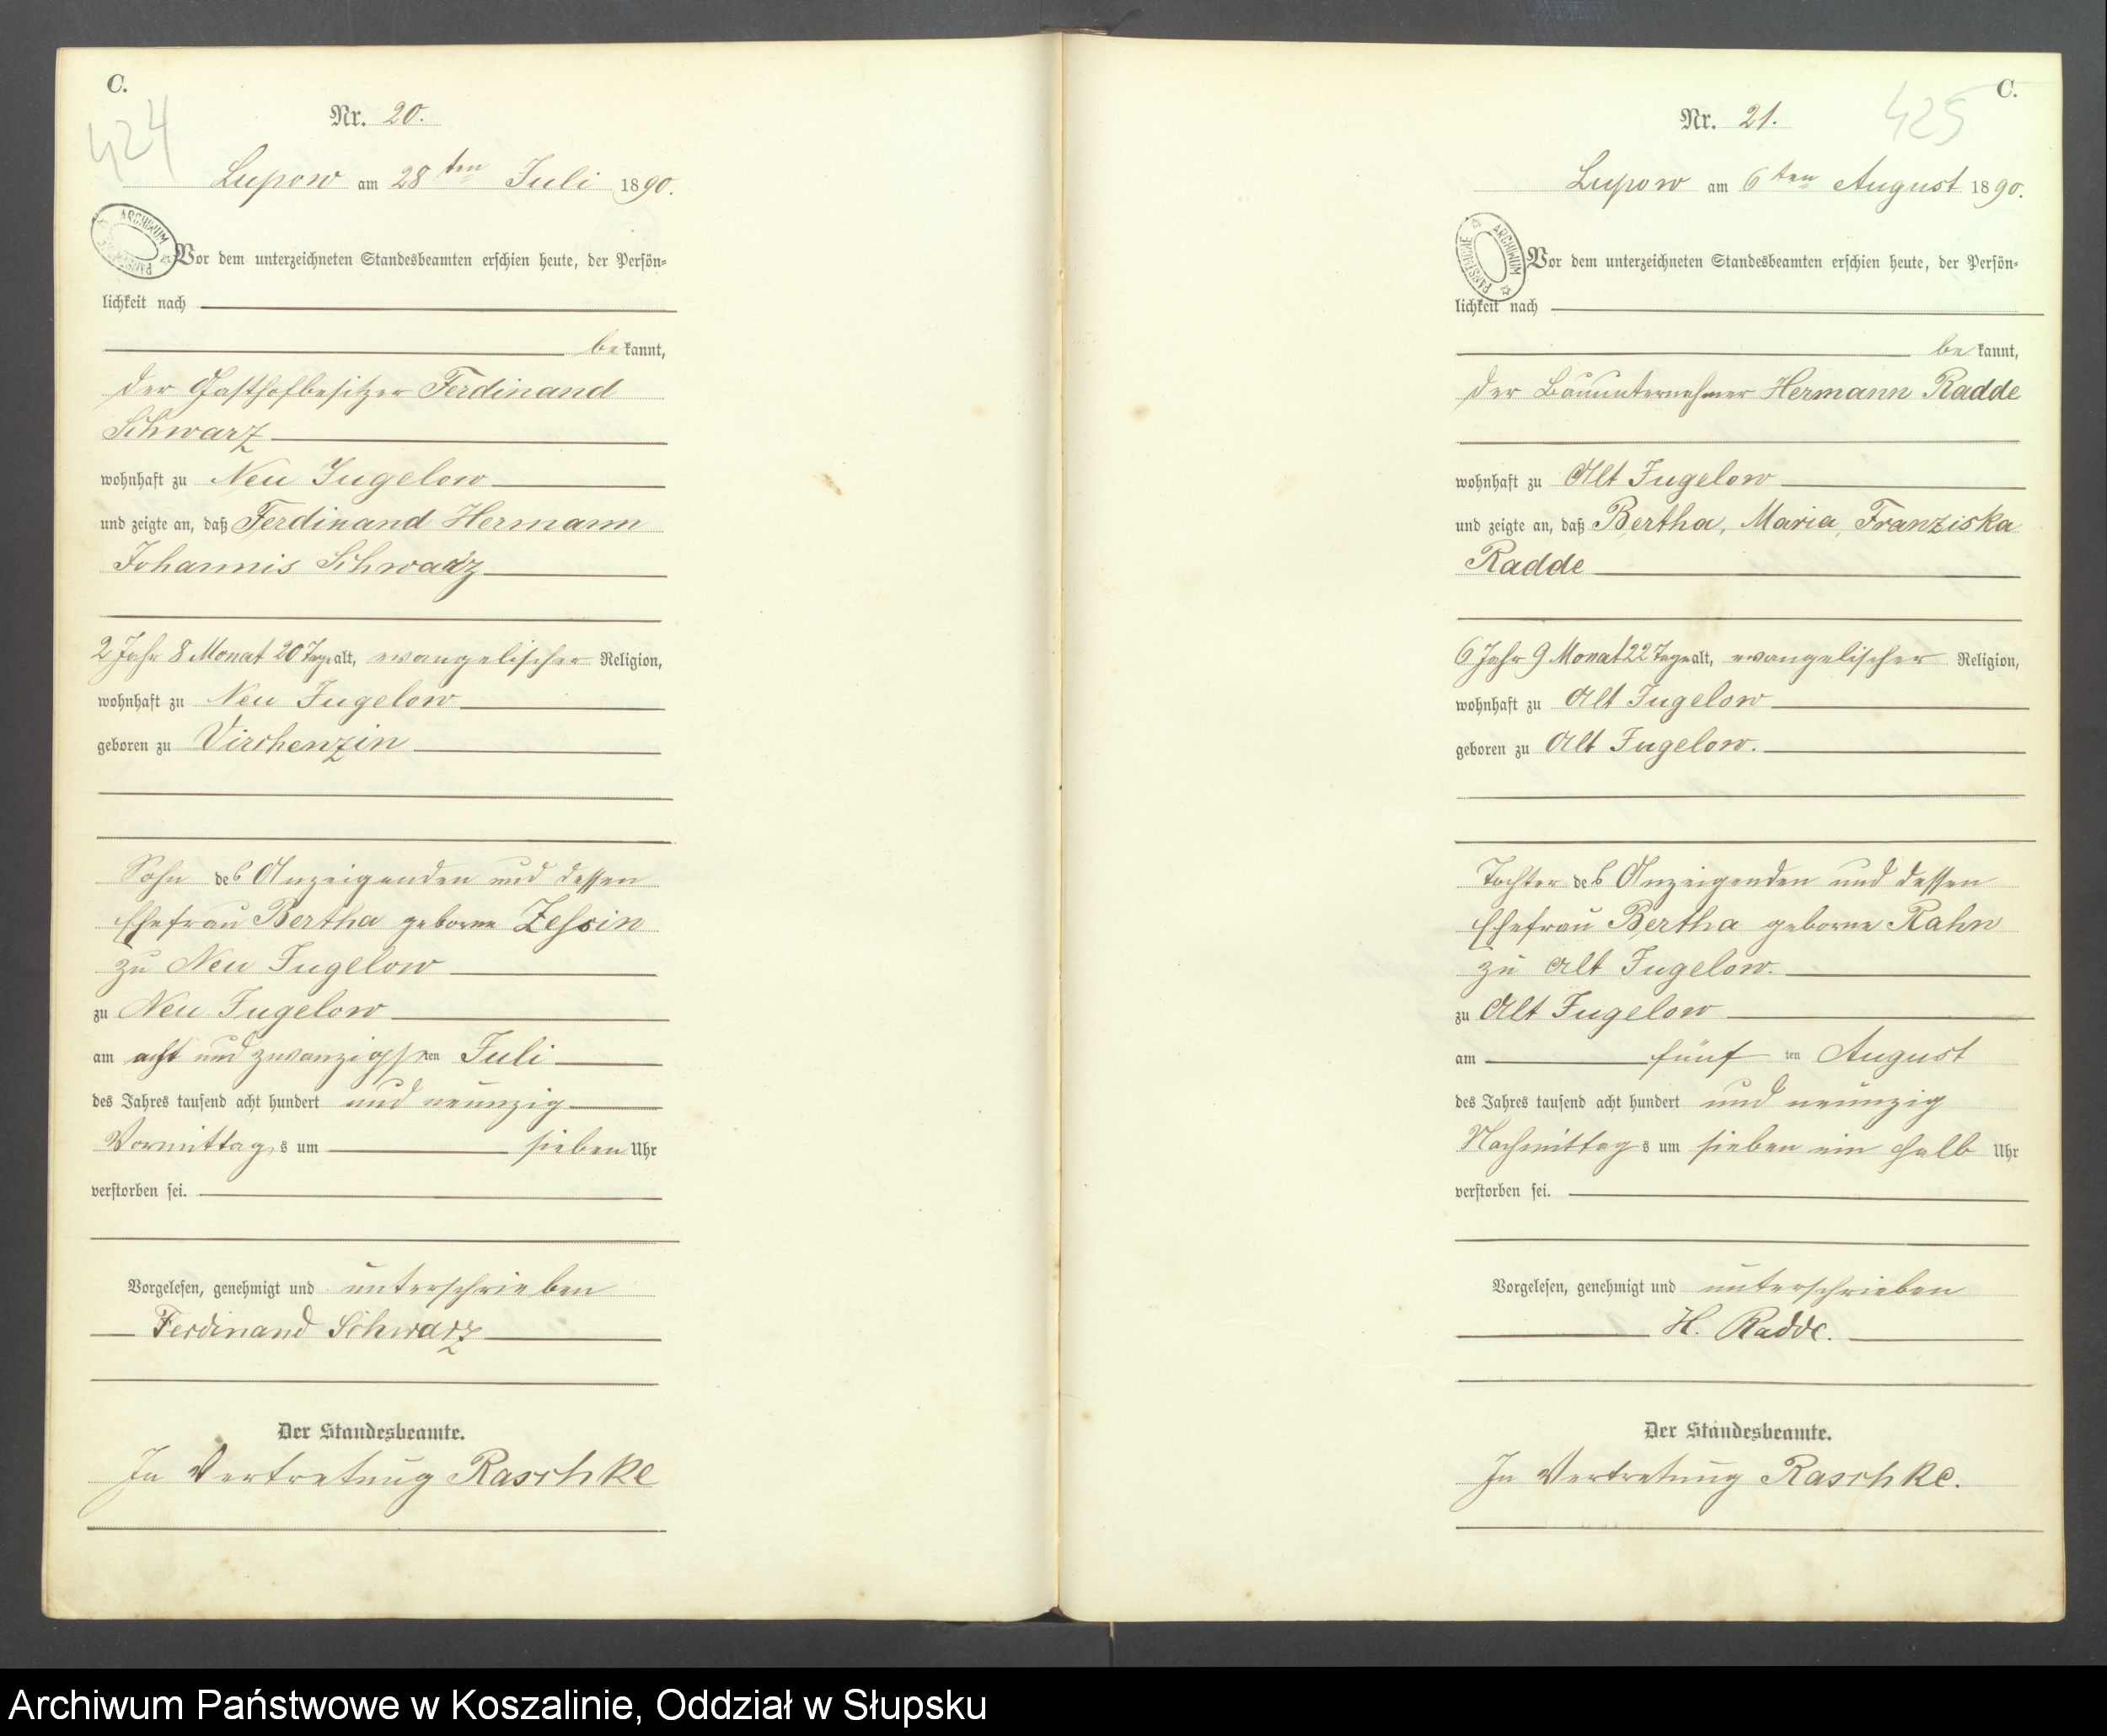 C.
424
Nr. 20.
Lupow am 28ten Juli 1890.
ARCHIWUM PAŃSTWOWE
Vor dem unterzeichneten Standesbeamten erschien heute, der Persön-
lichkeit nach
be kannt,
der Gasthofbesitzer Ferdinand
Schwarz
wohnhaft zu Neu Jugelow
und zeigte an, daß Ferdinand Hermann
Johannis Schwarz
2 Jahr 8 Monat 20 Tage alt, evangelischer Religion,
wohnhaft zu Neu Jugelow
geboren zu Virchenzin
Sohn des Anzeigenden und dessen
Ehefrau Bertha geborne Zessin
zu Neu Jugelow
zu Neu Jugelow
am acht und zwanzigsten Juli
des Jahres tausend acht hundert und neunzig
Vormittags um sieben Uhr
verstorben sei.
Vorgelesen, genehmigt und unterschrieben
Ferdinand Schwarz
Der Standesbeamte.
In Vertretung Raschke
C.
425
Nr. 21.
Lupow am 6ten August 1890.
ARCHIWUM PAŃSTWOWE
Vor dem unterzeichneten Standesbeamten erschien heute, der Persön-
lichkeit nach
be kannt,
der Bauunternehmer Hermann Radde
wohnhaft zu Alt Jugelow
und zeigte an, daß Bertha, Maria, Franziska
Radde
6 Jahr 9 Monat 22 Tage alt, evangelischer Religion,
wohnhaft zu Alt Jugelow
geboren zu Alt Jugelow.
Tochter des Anzeigenden und dessen
Ehefrau Bertha geborne Rahn
zu Alt Jugelow.
zu Alt Jugelow
am fünf ten August
des Jahres tausend acht hundert und neunzig
Nachmittags um sieben ein halb Uhr
verstorben sei.
Vorgelesen, genehmigt und unterschrieben
H. Radde.
Der Standesbeamte.
In Vertretung Raschke.
Archiwum Państwowe w Koszalinie, Oddział w Słupsku